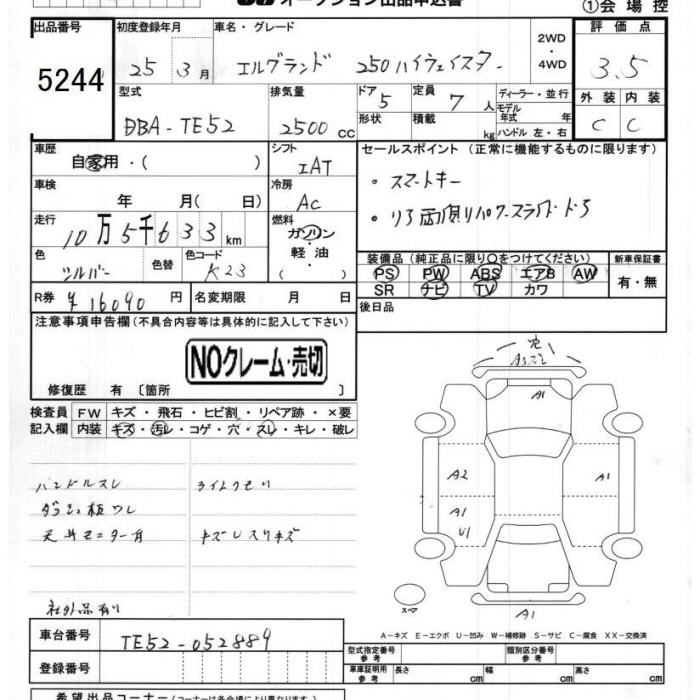 オークション出品申込書
①会場控
出品番号
5244
初度登録年月
25年 3月
車名・グレード
エルグランド 250ハイウェイスター
2WD
・
4WD
評価点
3.5
型式
DBA-TE52
排気量
2500 cc
ドア
5
形状
定員
7人
積載
kg
ディーラー・並行
モデル
年式 年
ハンドル 左・右
外装 内装
C C
車歴
自家用・( )
シフト
IAT
セールスポイント (正常に機能するものに限ります)
・スマートキー
・リヤ両側リパワースライドドア
車検
年 月( 日)
冷房
AC
走行
10万5千633km
燃料
ガソリン
・
軽油
( )
色
シルバー
色替
色コード
K23
装備品(純正品に限り○をつけてください)
PS PW ABS エアB AW
SR ナビ TV カワ
新車保証書
有・無
R券 ¥16090円
名変期限 月 日
後日品
注意事項申告欄(不具合内容等は具体的に記入して下さい)
NOクレーム・売切
修復歴 有〔箇所 〕
検査員
記入欄
FW キズ・飛石・ヒビ割・リペア跡・×要
内装 キズ・汚レ・コゲ・穴・スレ・キレ・破レ
ハンドルスレ ライトクモリ
ダッシュ板ワレ
天井モニター有 キズUスリキズ
社外品有り
A1
A2 A1
A1
U1
スペア
A1
A-キズ E-エクボ U-凹み W-補修跡 S-サビ C-腐食 XX-交換済
車台番号 TE52-052889
登録番号
型式指定番号
参考
類別区分番号
参考
車庫証明用
参考
長さ cm 幅 cm 高さ cm
希望出品コーナー(コーナーは各会場により異なります)